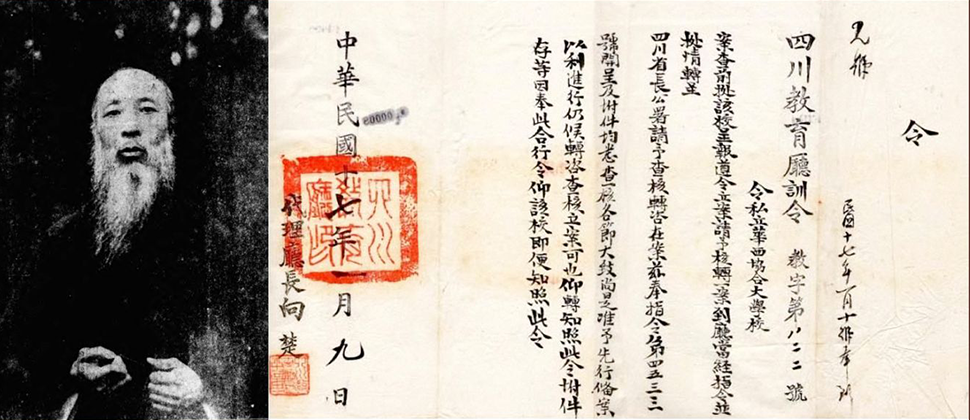 令
四川教育廳訓令 教字第八二二號
令私立華西協合大學校
案查前據該校呈報遵令立案請予核轉一案到廳當經指令並
據情轉並
四川省長公署請予查核轉咨在案茲奉指令第四五三三
號開呈及附件均悉查核各節大致尚是准予先行備案
以利進行仍候轉咨查核立案可也仰轉知照此令附件
存等因奉此合行令仰該校即便知照此令
中華民國十七年一月九日
代理廳長向楚